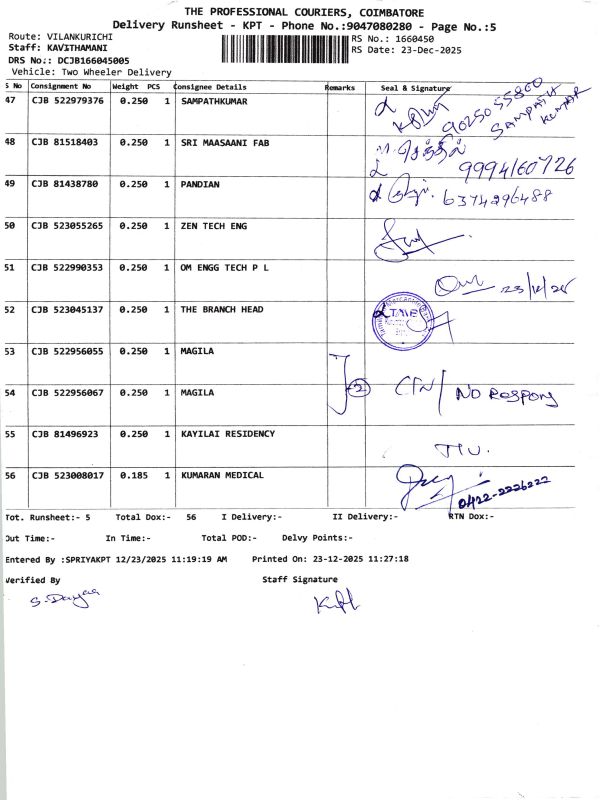 THE PROFESSIONAL COURIERS, COIMBATORE
Delivery Runsheet - KPT - Phone No.:9047080280 - Page No.:5
Route: VILANKURICHI
RS No.: 1660450
Staff: KAVITHAMANI
RS Date: 23-Dec-2025
DRS No.: DCJB166045005
Vehicle: Two Wheeler Delivery
S No Consignment No Weight PCS Consignee Details Remarks Seal & Signature
47 CJB 522979376 0.250 1 SAMPATHKUMAR 9025055860 SAMPATH KUMAR
48 CJB 81518403 0.250 1 SRI MAASAANI FAB 9994160726
49 CJB 81438780 0.250 1 PANDIAN 6374296488
50 CJB 523055265 0.250 1 ZEN TECH ENG
51 CJB 522990353 0.250 1 OM ENGG TECH P L 23/12/25
52 CJB 523045137 0.250 1 THE BRANCH HEAD TMB
53 CJB 522956055 0.250 1 MAGILA
54 CJB 522956067 0.250 1 MAGILA 2 NO RESPON
55 CJB 81496923 0.250 1 KAYILAI RESIDENCY
56 CJB 523008017 0.185 1 KUMARAN MEDICAL 0422-2226222
Tot. Runsheet:- 5 Total Dox:- 56 I Delivery:- II Delivery:- RTN Dox:-
Out Time:- In Time:- Total POD:- Delvy Points:-
Entered By :SPRIYAKPT 12/23/2025 11:19:19 AM Printed On: 23-12-2025 11:27:18
Verified By Staff Signature